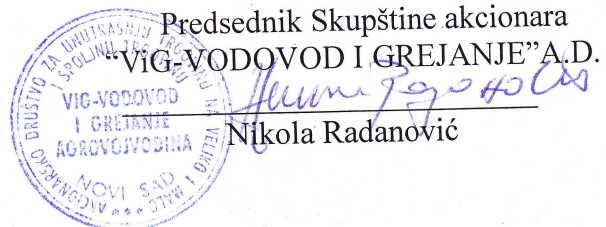 Predsednik Skupštine akcionara
“ViG-VODOVOD I GREJANJE”A.D.
Nikola Radanović
AKCIONARSKO DRUŠTVO ZA UNUTRAŠNJU TRGOVINU NA VELIKO I MALO
I SPOLJNU TRGOVINU
VIG-VODOVOD
I GREJANJE
AGROVOJVODINA
NOVI SAD